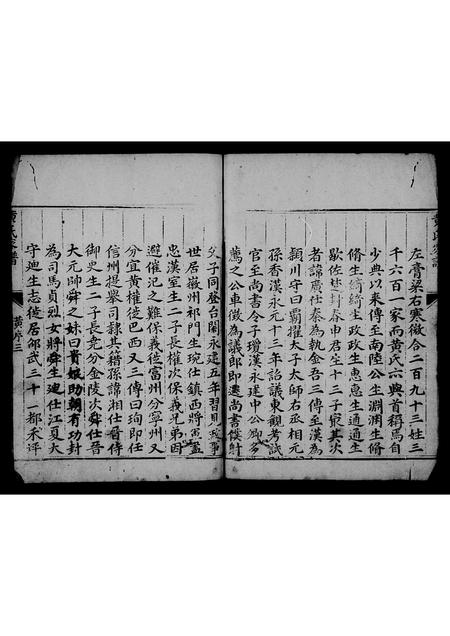 左膏粱右寒微合二百九十三姓三
千六百一家而黃氏六與首稱焉自
少典以來傳至南陸公生淵淵生脩
脩生綺綺生政政生惠惠生通通生
歇佐楚封春申君生十三子最其次
者諱廣仕秦為執金吾三傳至漢為
潁川守曰霸擢太子太師右丞相元
孫香漢永元十三年詔議東觀考試
官至尚書令子瓊漢永建中公卿多
薦之公車徵為議郎即遷尚書僕射
父子同登台閣永建五年習見故事
世居徽州祁門生琬仕鎮西將軍
忠漢室生二子長權次保義兄弟因
避催氾之難保義徙富州分寧州又
分宜黃權徙巴西又三傳曰絢即任
信州提舉司隸其籍孫諱湘仕晉侍
御史生二子長堯分金陵次舜仕晉
大元帥舜之妹曰貴娘助朝有功封
為司馬貞烈女將舜生迪仕江夏太
守迪生志徙居邵武三十一都禾坪
黃序三